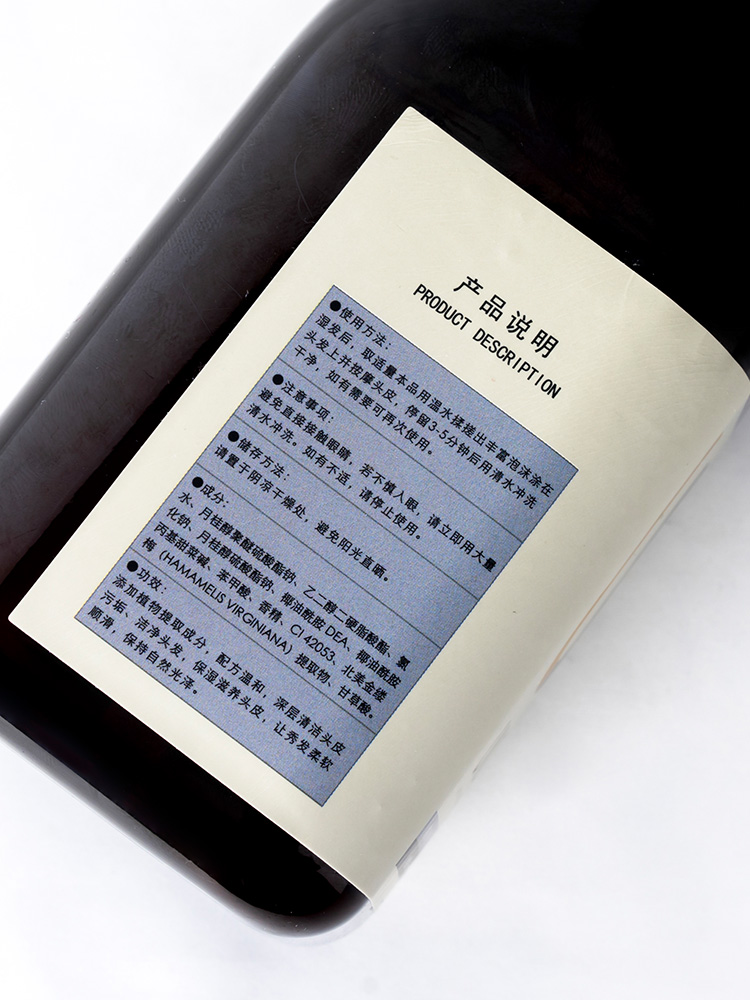 产品说明
PRODUCT DESCRIPTION
●使用方法：
湿发后，取适量本品用温水揉搓出丰富泡沫涂在
头发上并按摩头皮，停留3-5分钟后用清水冲洗
干净，如有需要可再次使用。
●注意事项：
避免直接接触眼睛，若不慎入眼，请立即用大量
清水冲洗。如有不适，请停止使用。
●储存方法：
请置于阴凉干燥处，避免阳光直晒。
●成分：
水、月桂醇聚醚硫酸酯钠、乙二醇二硬脂酸酯、氯
化钠、月桂醇硫酸酯钠、椰油酰胺 DEA、椰油酰胺
丙基甜菜碱、苯甲酸、香精、CI 42053、北美金缕
梅（HAMAMELIS VIRGINIANA）提取物、甘草酸。
●功效：
添加植物提取成分，配方温和，深层清洁头皮
污垢，洁净头发，保湿滋养头皮，让秀发柔软
顺滑，保持自然光泽。